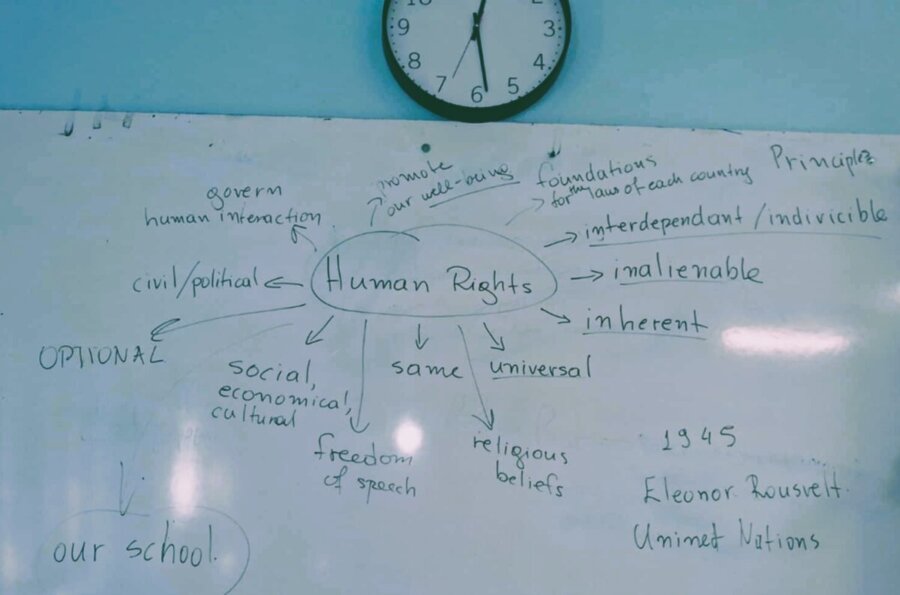 10
2
9
3
8
4
7
6
5
promote
our well-being
foundations
for the laws of each country
Principles
govern
human interaction
interdependant/indivicible
civil/political
Human Rights
inalienable
inherent
OPTIONAL
social,
economical,
cultural
same
universal
freedom
of speech
religious
beliefs
1945
Eleonor Rousvelt.
Uninet Nations
our school.